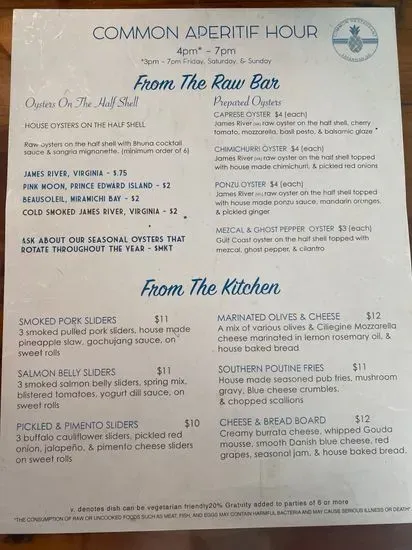 COMMON APERITIF HOUR
4pm* - 7pm
*3pm - 7pm Friday, Saturday, & Sunday
From The Raw Bar
Oysters On The Half Shell
HOUSE OYSTERS ON THE HALF SHELL
Raw oysters on the half shell with Bhuna cocktail
sauce & sangria mignonette. (minimum order of 6)
JAMES RIVER, VIRGINIA - $.75
PINK MOON, PRINCE EDWARD ISLAND - $2
BEAUSOLEIL, MIRAMICHI BAY - $2
COLD SMOKED JAMES RIVER, VIRGINIA - $2
ASK ABOUT OUR SEASONAL OYSTERS THAT
ROTATE THROUGHOUT THE YEAR - $MKT
Prepared Oysters
CAPRESE OYSTER $4 (each)
James River raw oyster on the half shell, cherry
tomato, mozzarella, basil pesto, & balsamic glaze
CHIMICHURRI OYSTER $4 (each)
James River raw oyster on the half shell topped
with house made chimichurri, & pickled red onions
PONZU OYSTER $4 (each)
James River raw oyster on the half shell topped
with house made ponzu sauce, mandarin oronges,
& pickled ginger
MEZCAL & GHOST PEPPER OYSTER $3 (each)
Gulf Coast oyster on the half shell topped with
mezcal, ghost pepper, & cilantro
From The Kitchen
SMOKED PORK SLIDERS $11
3 smoked pulled pork sliders, house made
pineapple slaw, gochujang sauce, on
sweet rolls
SALMON BELLY SLIDERS $11
3 smoked salmon belly sliders, spring mix,
blistered tomatoes, yogurt dill sauce, on
sweet rolls
PICKLED & PIMENTO SLIDERS $10
3 buffalo cauliflower sliders, pickled red
onion, jalapeño, & pimento cheese sliders
on sweet rolls
MARINATED OLIVES & CHEESE $12
A mix of various olives & Ciliegine Mozzarella
cheese marinated in lemon rosemary oil, &
house baked bread
SOUTHERN POUTINE FRIES $11
House made seasoned pub fries, mushroom
gravy, Blue cheese crumbles,
& chopped scallions
CHEESE & BREAD BOARD $12
Creamy burrata cheese, whipped Gouda
mousse, smooth Danish blue cheese, red
grapes, seasonal jam, & house baked bread.
v. denotes dish can be vegetarian friendly20% Gratuity added to parties of 6 or more
*THE CONSUMPTION OF RAW OR UNCOOKED FOODS SUCH AS MEAT, FISH, AND EGGS MAY CONTAIN HARMFUL BACTERIA AND MAY CAUSE SERIOUS ILLNESS OR DEATH*